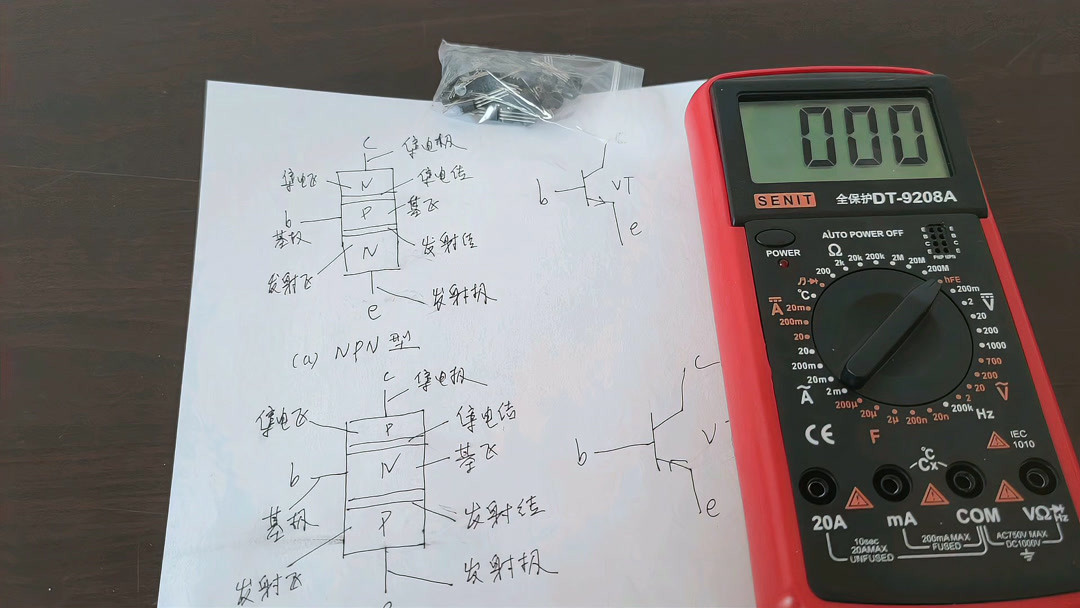 c
集电极
集电区
N
集电结
b
P
基区
基极
N
发射结
发射区
e
发射极
(a) NPN型
c
集电极
集电区
P
集电结
b
N
基区
基极
P
发射结
发射区
发射极
c
b
VT
e
c
b
V
e
000
SENIT
全保护DT-9208A
AUTO POWER OFF
POWER
Ω
200
2k
20k
200k
2M
20M
200M
hFE
PNP NPN
°C
A
20m
200m
20
20
200m
20m
2m
A
200m
2
20
200
1000
V
700
200
20
2
V
200k
Hz
200μ
20μ
2μ
200n
20n
F
CE
IEC
1010
°C
Cx
20A
mA
COM
VΩHz
10sec
20AMAX
UNFUSED
200mAMAX
FUSED
AC750V MAX
DC1000V